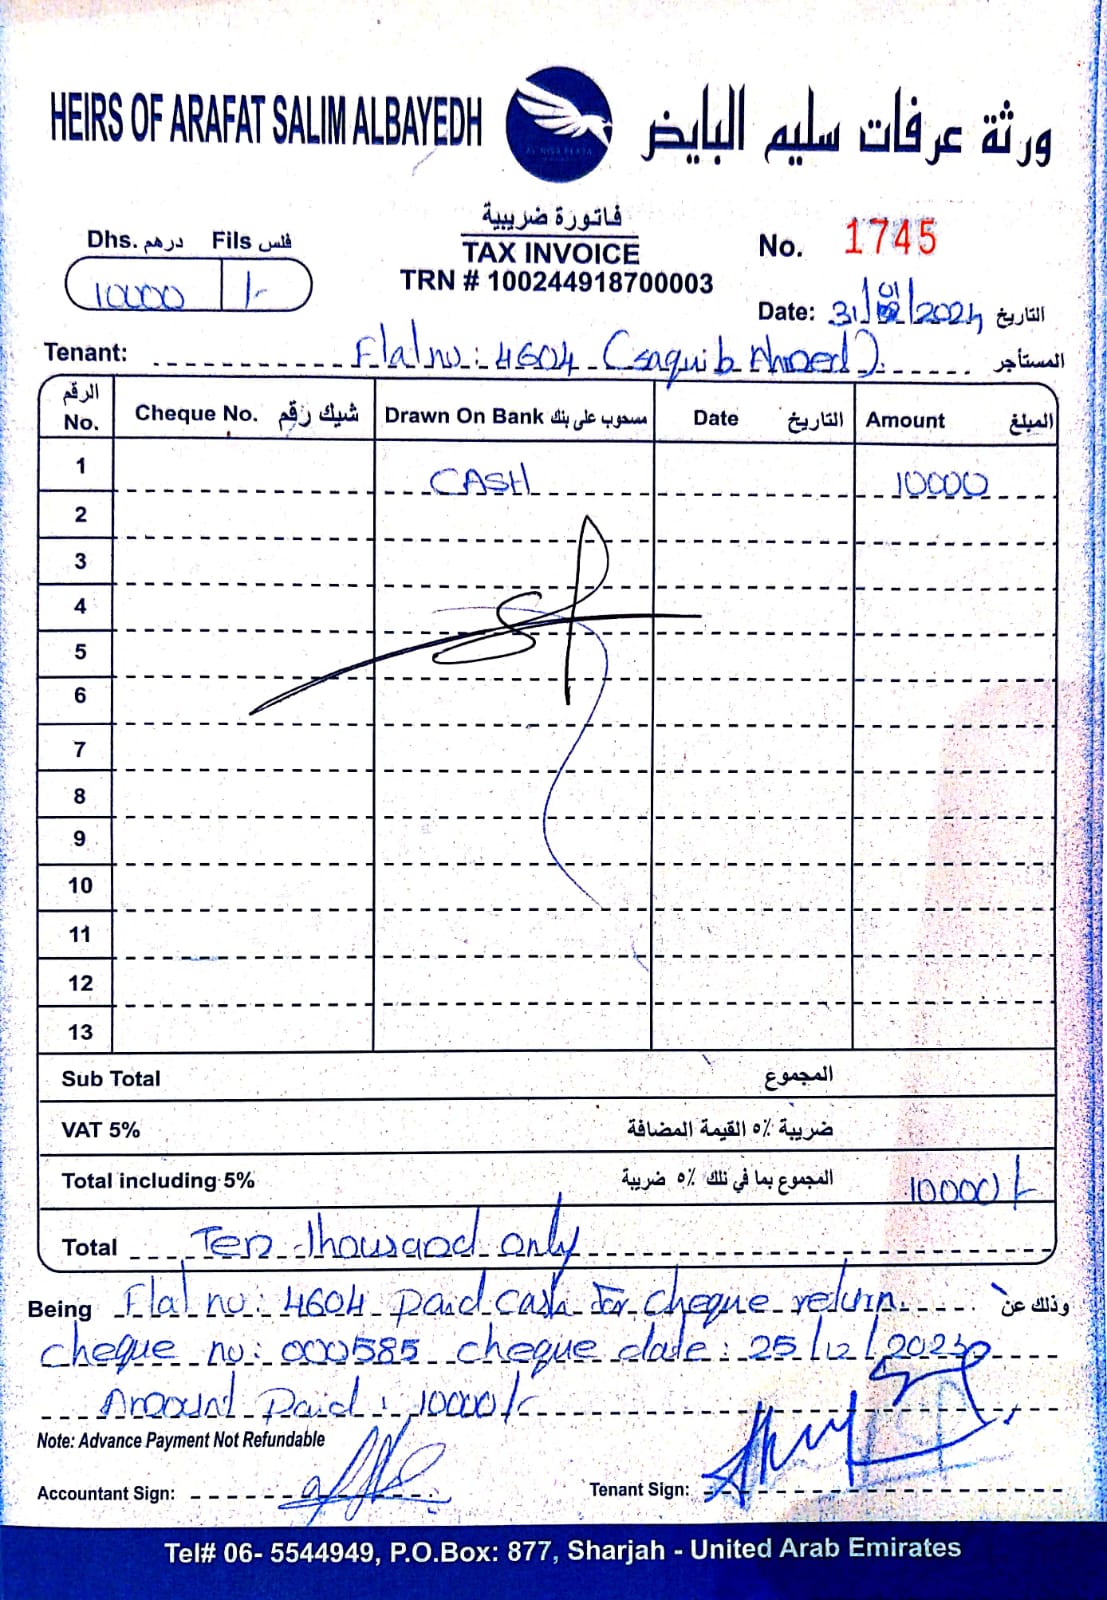 HEIRS OF ARAFAT SALIM ALBAYEDH
ورثة عرفات سليم البايض
فاتورة ضريبية
TAX INVOICE
TRN # 100244918700003
Dhs. درهم Fils فلس
10000 /-
No. 1745
Date: 31/01/2024 التاريخ
Tenant: Flat no: 4604 (Saquib Ahmed) المستأجر
الرقم No. Cheque No. شيك رقم Drawn On Bank مسحوب على بنك Date التاريخ Amount المبلغ
1 CASH 10000
2
3
4
5
6
7
8
9
10
11
12
13
Sub Total المجموع
VAT 5% ضريبة ٥٪ القيمة المضافة
Total including 5% المجموع بما في ذلك ٥٪ ضريبة 10000/-
Total Ten thousand only
Being Flat no: 4604 paid cash for cheque return. وذلك عن
cheque no: 000585 cheque date: 25/12/2023
Amount Paid: 10000/-
Note: Advance Payment Not Refundable
Accountant Sign:
Tenant Sign:
Tel# 06- 5544949, P.O.Box: 877, Sharjah - United Arab Emirates